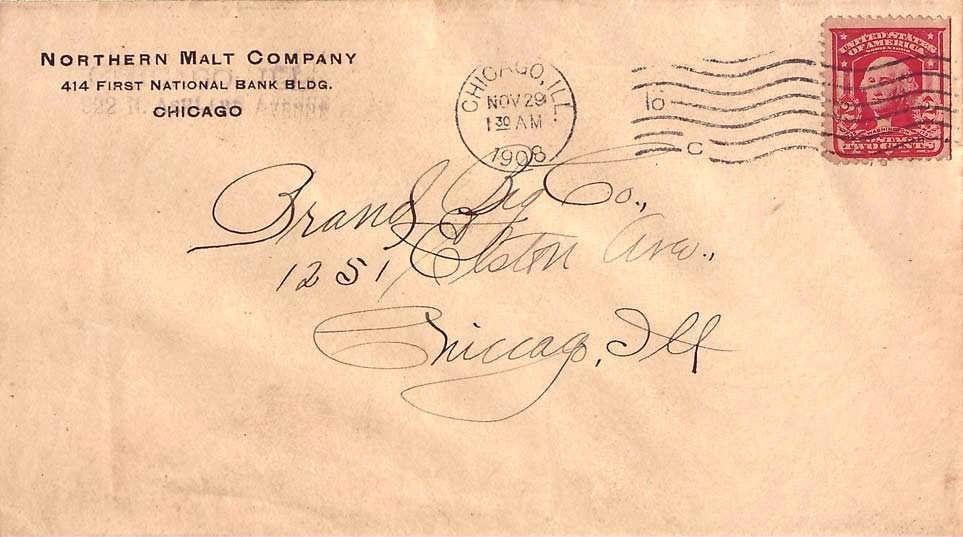 NORTHERN MALT COMPANY
414 FIRST NATIONAL BANK BLDG.
CHICAGO
CHICAGO, ILL.
NOV 29
1 30 AM
1908
16
C
UNITED STATES
OF AMERICA
WASHINGTON
TWO CENTS
Brand Big Co.,
1251 Elston Ave.,
Chiccago, Ill